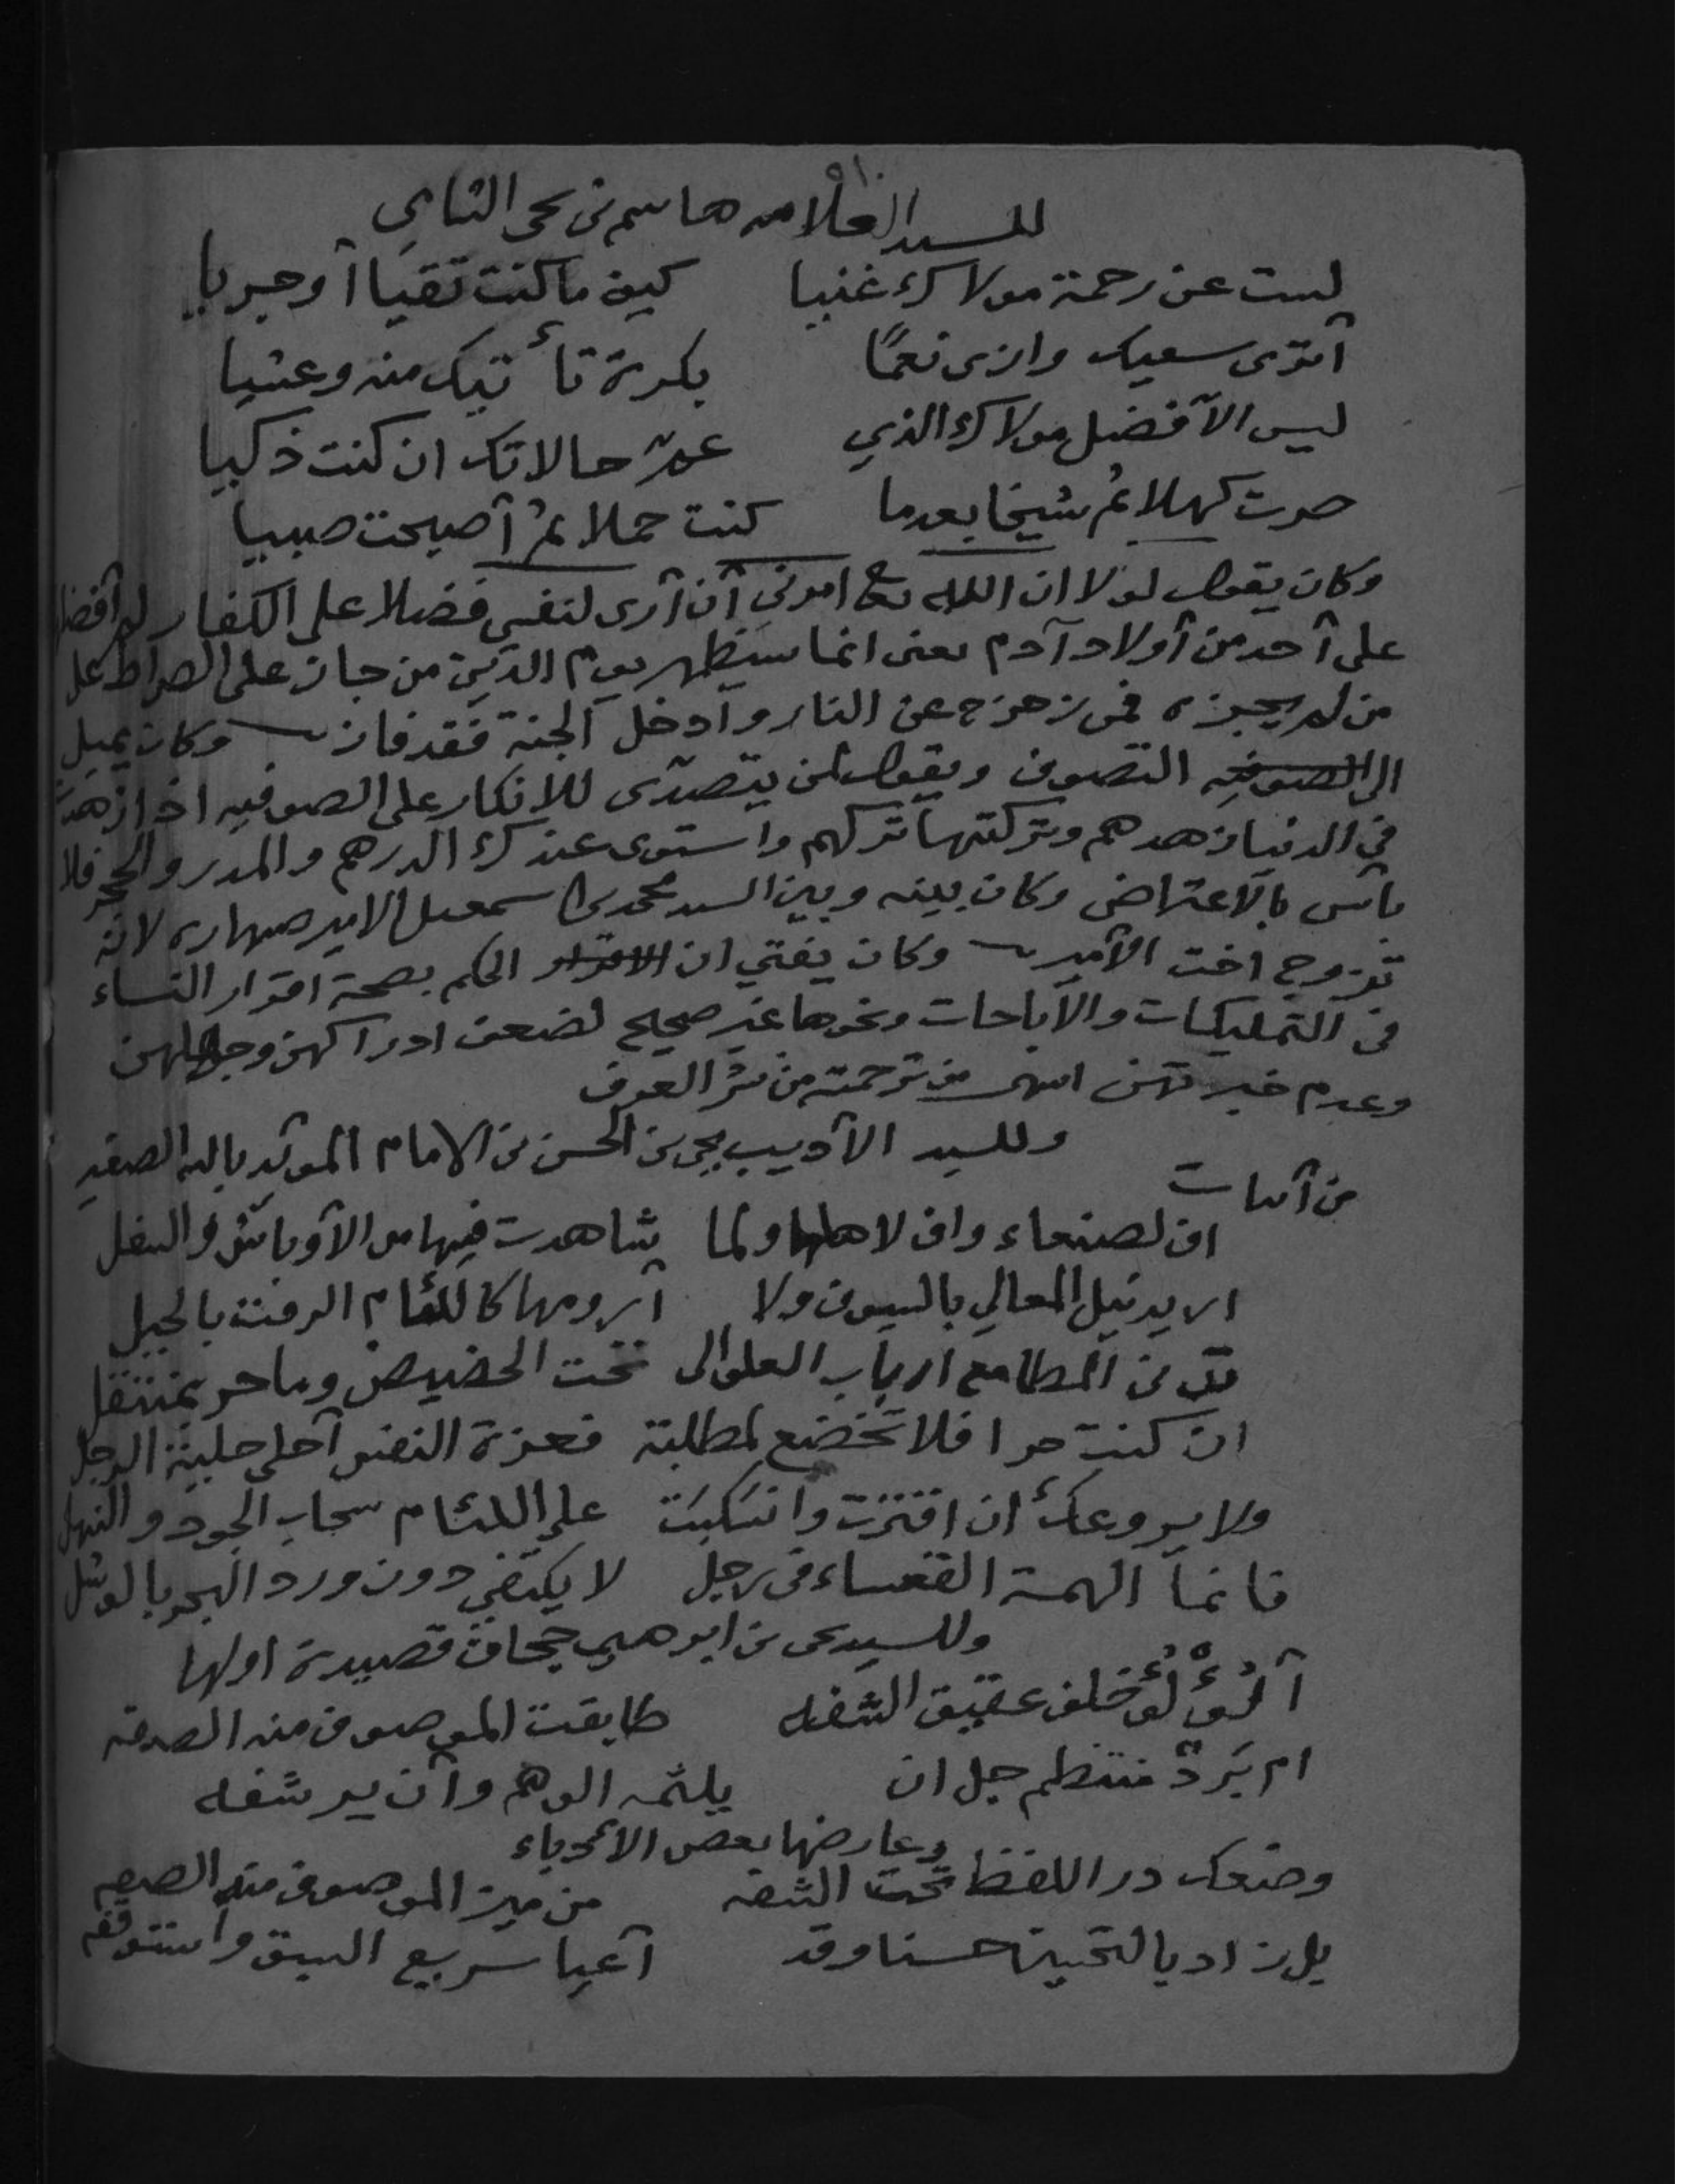 للسيد العلامه هاشم بن يحى الشامي
لست عن رحمة مولاك غنيا كيف ما كنت تقيا أو جريا
أترى سعيك وازى نعمًا بكرة تأتيك منه وعشيا
ليس الا فضل مولاك الذي عم حالاتك ان كنت ذكيا
صرت كهلا ثم شيخا بعدما كنت حملا ثم أصبحت صبيا
وكان يقول لولا ان الله تعالى امرني أن أرى لنفسي فضلا على الكفار لم أفضلها
على أحد من أولاد آدم يعنى انما سيظهر يوم الدين من جاز على الصراط على
من لم يجزه فمن زحزح عن النار وأدخل الجنة فقد فاز وكان يميل
الى الصوفيه التصوف ويقول لمن يتصدى للانكار على الصوفيه اذا زهدت
في الدنيا زهدهم وتركتها تركهم واستوى عندك الدرهم والمدر والحجر فلا
بأس بالاعتراض وكان بينه وبين السيد محمد بن اسمعيل الامير صهاره لانه
تزوج اخت الأمير وكان يفتي ان الاقرار الحكم بصحة اقرار النساء
في التمليكات والاباحات ونحوها غير صحيح لضعف ادراكهن وجهلهن
وعدم خبرتهن انتهى من ترجمته من نشر العرف
وللسيد الأديب يحى بن الحسن بن الامام المؤيد بالله الصغير
من أبيات
اف لصنعاء واف لاهلها ولما شاهدت فيها من الأوباش والسفل
اريد نيل المعالي بالسيوف ولا أرومها كاللئام الرفت بالحيل
من المطامع ارباب العلو الى تحت الحضيض وما حر بمنتقل
ان كنت حرا فلا تخضع لمطلبة فعزة النفس أحلى حلية الرجل
ولا يروعك أن اقترت وانسكبت على اللئام سحاب الجود والنهل
فانما الهمة القعساء في رجل لا يكتفي دون ورد البحر بالوشل
وللسيد يحى بن ابرهيم جحاف قصيدة اولها
ألؤلؤ خلف عقيق الشفه طابقت الموصوف منه الصفه
ام برد منتظم جل ان يلثمه الوهم وأن يرشفه
وعارضها بعض الأدباء
وضعك در اللفظ تحت الشفه من ميز الموصوف منه الصفه
بل زاد بالتحية حسنا وقد أعيا سريع السبق واستوقفه